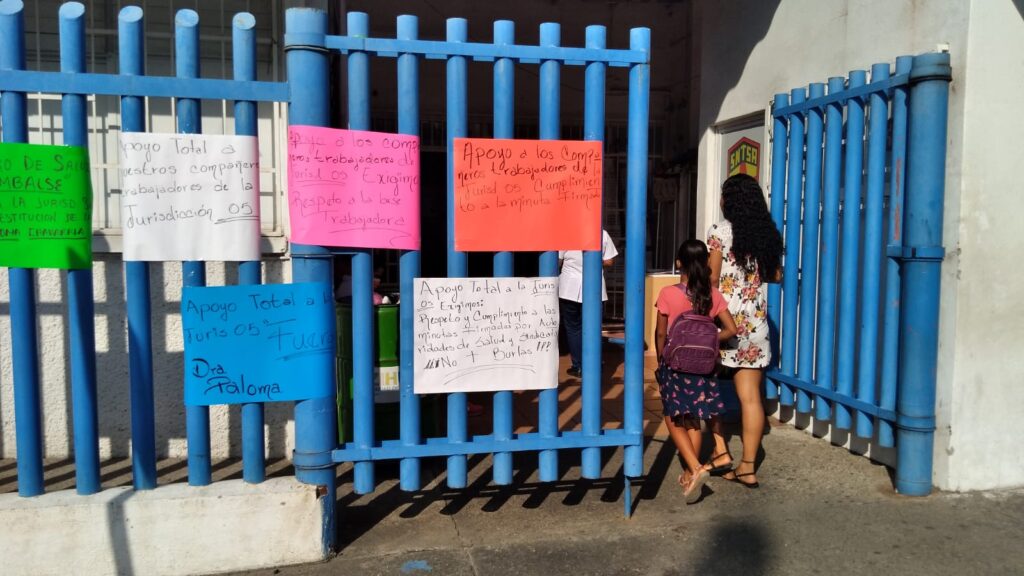 O DE SALUD
EMBALSE"
A LA JURISD
ESTITUCION DE
Apoyo Total a
nuestros compañer
trabajadores de la
Jurisdicción 05
Apoyo a los com
trabajadores de
Jurisd 05 Exigimo
Respeto a la base
Trabajadora
Apoyo a los Compa
neros trabajadores de la
Jurisd 05 Cumplimien
to a la minuta Firmada
Apoyo Total a la
Juris 05: Fuera
Dra
Paloma
Apoyo Total a la Juris
05 Exigimos:
Respeto y Cumplimiento a las
minutas Firmadas por Auto
ridades de Salud y
No + Burlas !!!
SNTSA